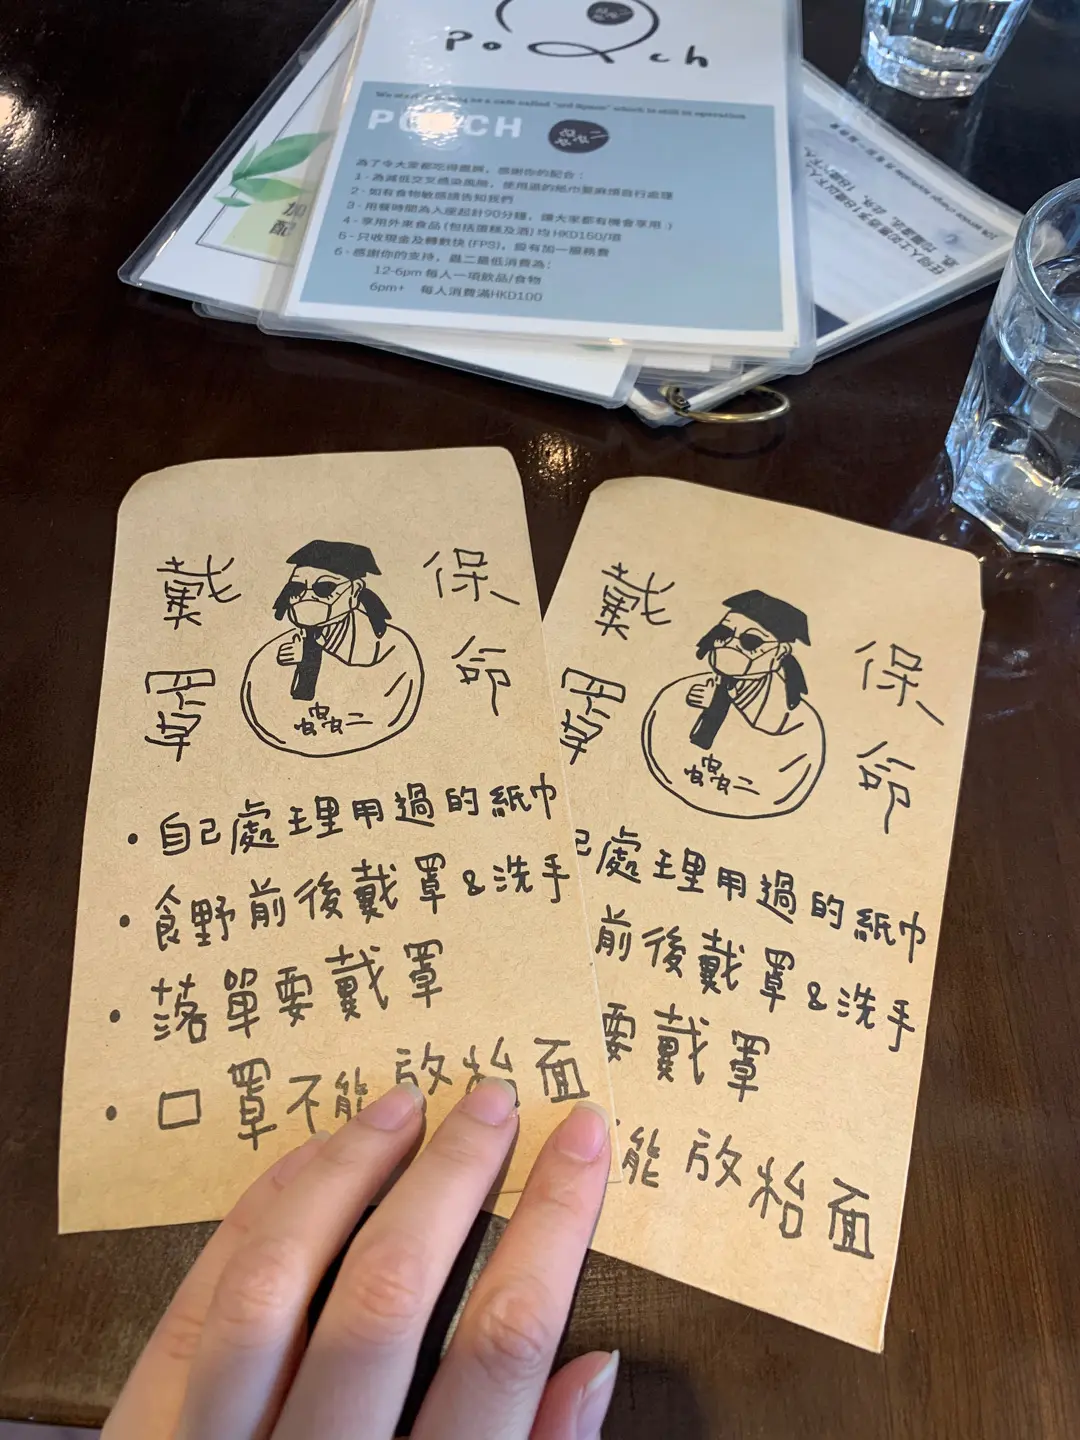 PoQch
We started
as a cafe called "
" which is still in operation
POQCH
為了令大家都吃得盡興，感謝你的配合：
1 - 為減低交叉感染風險，使用過的紙巾要麻煩自行處理
2 - 如有食物敏感請告知我們
3 - 用餐時間為入座起計90分鐘，讓大家都有機會享用 :)
4 - 享用外來食品 (包括蛋糕及酒) 均 HKD150/項
5 - 只收現金及轉數快 (FPS)，設有加一服務費
6 - 感謝你的支持，蟲二最低消費為：
12-6pm 每人一項飲品/食物
6pm+ 每人消費滿HKD100
加
配
戴罩
保命
蟲二
• 自己處理用過的紙巾
• 食野前後戴罩&洗手
• 落單要戴罩
• 口罩不能放枱面
戴罩
保命
蟲二
己處理用過的紙巾
前後戴罩&洗手
要戴罩
能放枱面